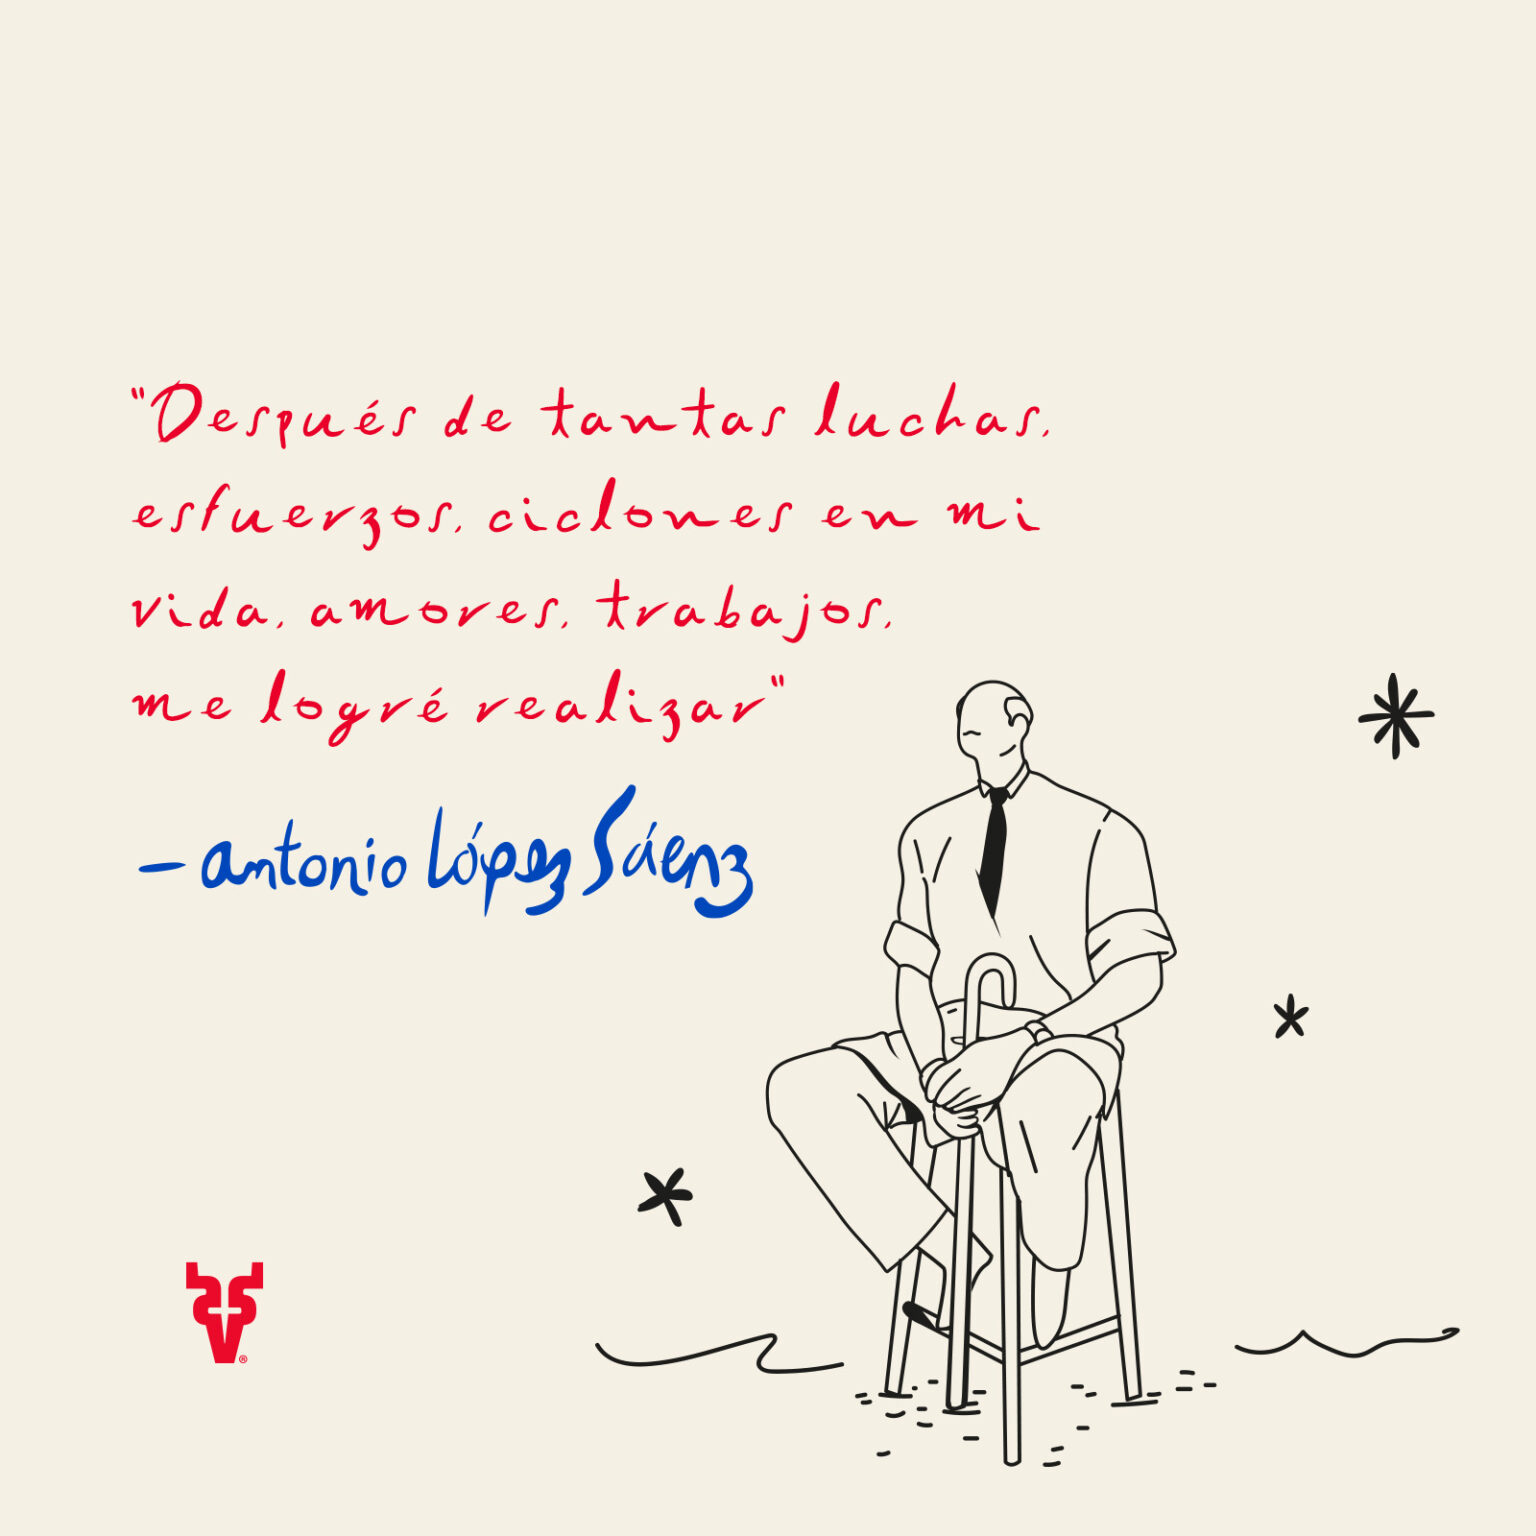 "Después de tantas luchas,
esfuerzos, ciclones en mi
vida, amores, trabajos,
me logré realizar"
— antonio López Sáenz
®